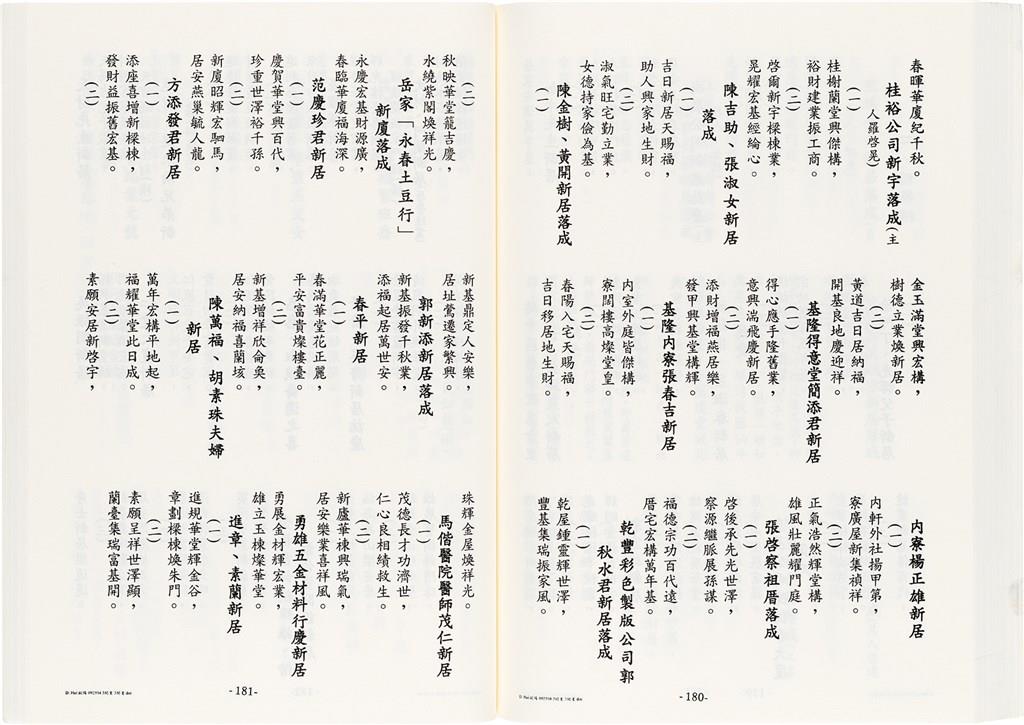 春暉華廈紀千秋。
桂裕公司新宇落成(主
人羅啓晃)
(一)
桂榭蘭堂興傑構，
裕財建業振工商。
(二)
啓爾新宇樑棟業，
晃耀宏基經綸心。
陳吉助、張淑女新居
落成
(一)
吉日新居天賜福，
助人興家地生財。
(二)
淑氣旺宅勤立業，
女德持家儉為基。
陳金樹、黃開新居落成
(一)
金玉滿堂興宏構，
樹德立業煥新居。
(二)
黃道吉日居納福，
開基良地慶迎祥。
基隆得意堂簡添君新居
(一)
得心應手隆舊業，
意興湍飛慶新居。
(二)
添財增福燕居樂，
發甲興基堂構輝。
基隆内寮張春吉新居
(一)
内室外庭皆傑構，
寮閣樓高燦堂皇。
(二)
春陽入宅天賜福，
吉日移居地生財。
内寮楊正雄新居
(一)
内軒外社揚甲第，
寮廣屋新集禎祥。
(二)
正氣浩然輝堂構，
雄風壯麗耀門庭。
張啓察祖厝落成
(一)
啓後承先光世澤，
察源繼脈展孫謀。
(二)
福德宗功百代遠，
厝宅宏構萬年基。
乾豐彩色製版公司郭
秋水君新居落成
(一)
乾屋鍾靈輝世澤，
豐基集瑞振家風。
-180-
(二)
秋映華堂籠吉慶，
水繞紫閣煥祥光。
岳家「永春土豆行」
新廈落成
永慶宏基財源廣，
春臨華廈福海深。
范慶珍君新居
(一)
慶賀華堂興百代，
珍重世澤裕千孫。
(二)
新廈昭輝宏駟馬，
居安燕巢毓人龍。
方添發君新居
(一)
添座喜增新樑棟，
發財益振舊宏基。
(二)
新基鼎定人安樂，
居址鶯遷家繁興。
郭新添新居落成
新基振發千秋業，
添福起居萬世安。
春平新居
(一)
春滿華堂花正麗，
平安富貴燦樓臺。
(二)
新基增祥欣侖奐，
居安納福喜蘭垓。
陳萬福、胡素珠夫婦
新居
(一)
萬年宏構平地起，
福耀華堂此日成。
(二)
素願安居新啓宇，
珠輝金屋煥祥光。
馬偕醫院醫師茂仁新居
(一)
茂德長才功濟世，
仁心良相績救生。
(二)
新廬華棟興瑞氣，
居安樂業喜祥風。
勇雄五金材料行慶新居
勇展金材輝宏業，
雄立玉棟燦華堂。
進章、素蘭新居
(一)
進規華堂輝金谷，
章劃樑棟煥朱門。
(二)
素願呈祥世澤顯，
蘭臺集瑞富基開。
-181-